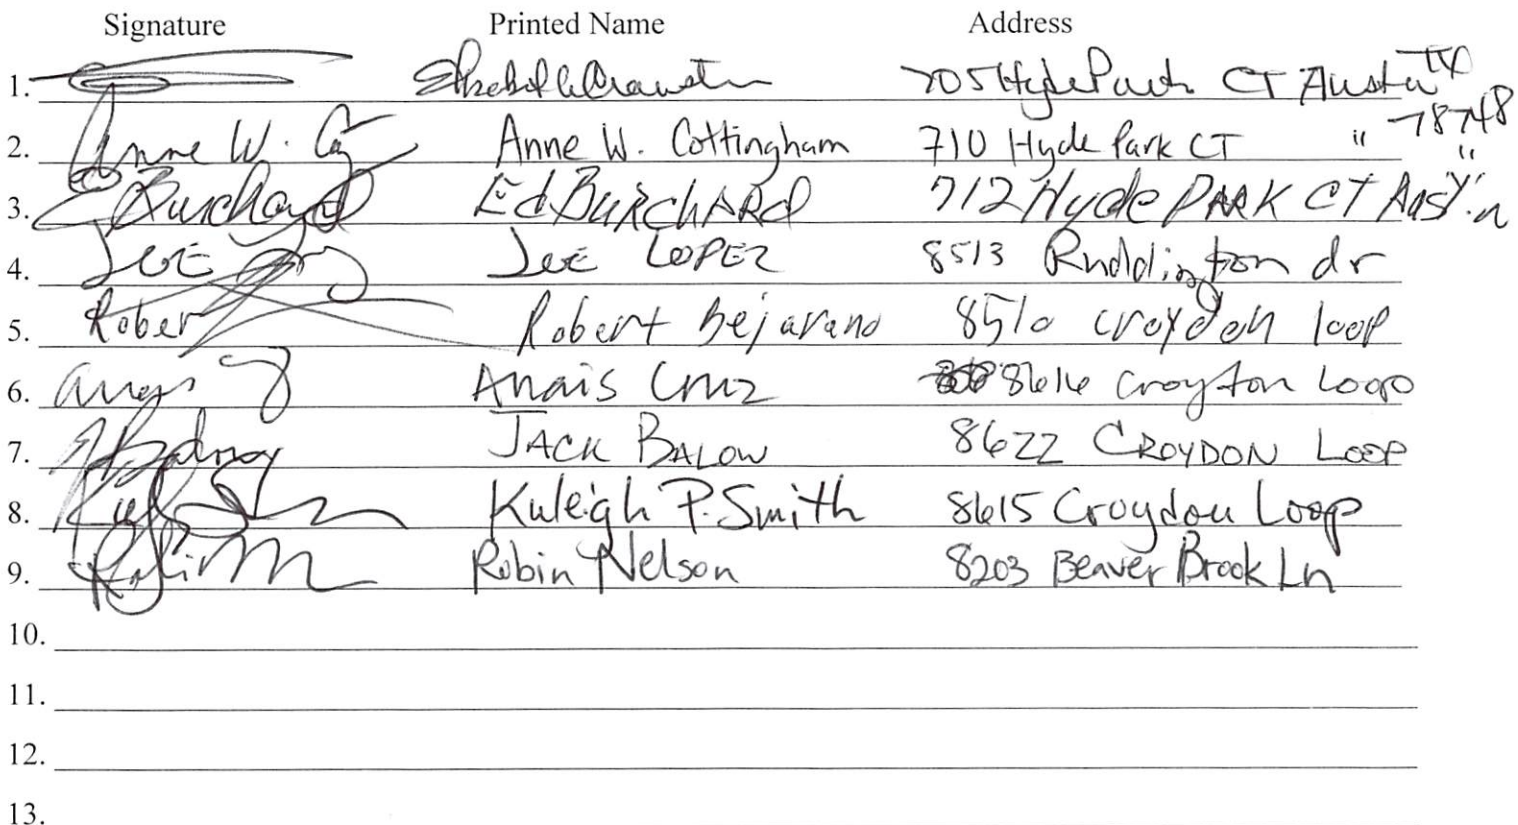 Signature Printed Name Address
1. 705 Hyde Park CT Austin TX
78748
2. Anne W. Anne W. Cottingham 710 Hyde Park CT " "
3. E Burchard Ed BURCHARD 712 Hyde PARK CT Austin
4. JOE JOE LOPEZ 8513 Ruddington dr
5. Robert Robert Bejarano 8510 croydon loop
6. Anais Cruz 8616 Croyton Loop
7. JACK BALOW 8622 CROYDON LOOP
8. Kuleigh P. Smith 8615 Croydon Loop
9. Robin Robin Nelson 8203 Beaver Brook Ln
10.
11.
12.
13.